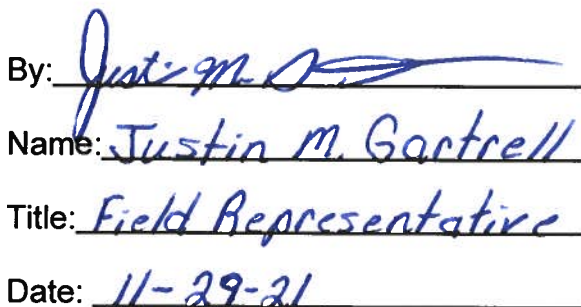 By: Justin M. G
Name: Justin M. Gartrell
Title: Field Representative
Date: 11-29-21